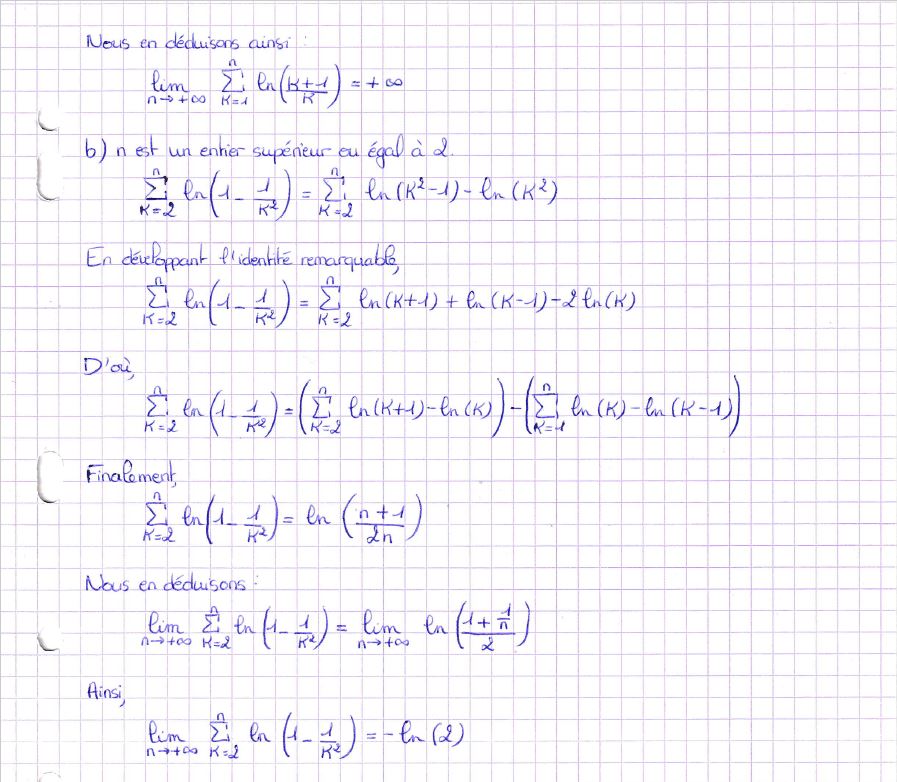 Nous en déduisons ainsi :
lim n→+∞ ∑ K=1 n ln((K+1)/K) = +∞
b) n est un entier supérieur ou égal à 2.
∑ K=2 n ln(1 - 1/K²) = ∑ K=2 n ln(K²-1) - ln(K²)
En développant l'identité remarquable,
∑ K=2 n ln(1 - 1/K²) = ∑ K=2 n ln(K+1) + ln(K-1) - 2 ln(K)
D'où,
∑ K=2 n ln(1 - 1/K²) = (∑ K=2 n ln(K+1) - ln(K)) - (∑ K=1 n ln(K) - ln(K-1))
Finalement,
∑ K=2 n ln(1 - 1/K²) = ln((n+1)/2n)
Nous en déduisons :
lim n→+∞ ∑ K=2 n ln(1 - 1/K²) = lim n→+∞ ln((1 + 1/n)/2)
Ainsi,
lim n→+∞ ∑ K=2 n ln(1 - 1/K²) = - ln(2)